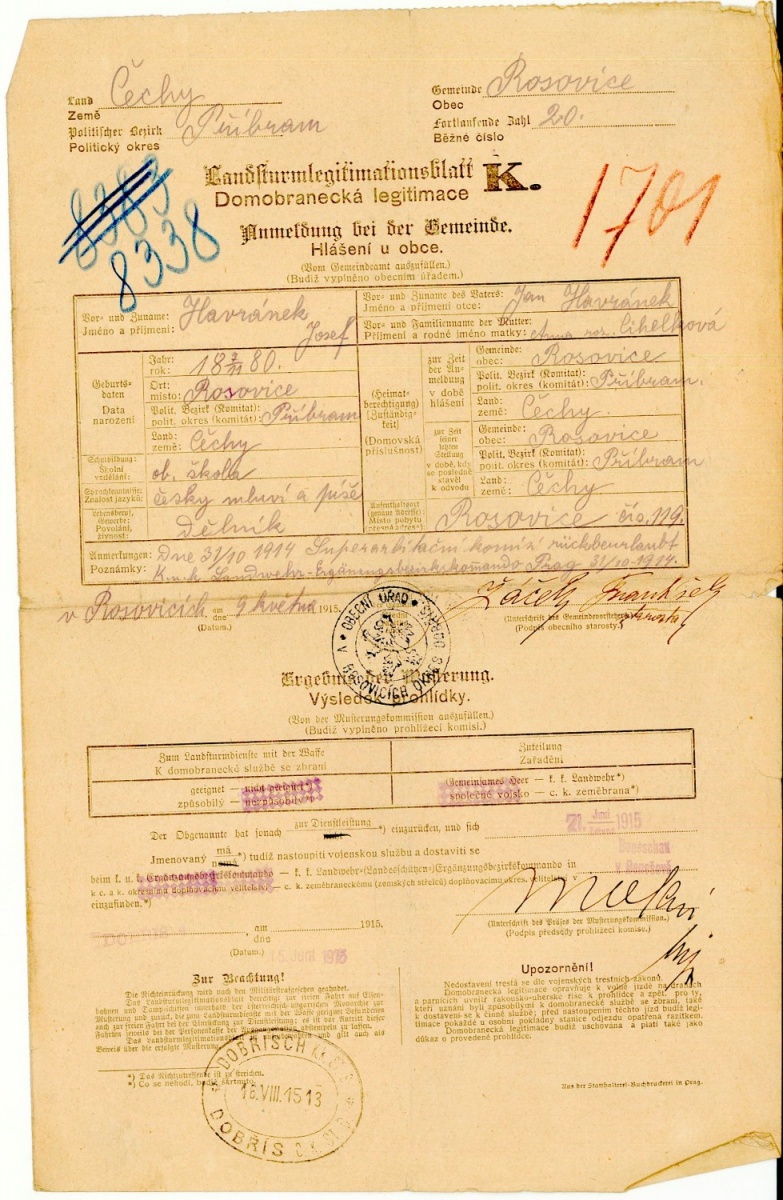 Land Země Čechy
Gemeinde Obec Rosovice
Politischer Bezirk Politický okres Příbram
Fortlaufende Zahl Běžné číslo 20.
Landsturmlegitimationsblatt K.
Domobranecká legitimace
8338
1701
Anmeldung bei der Gemeinde.
Hlášení u obce.
(Vom Gemeindeamt auszufüllen.)
(Budiž vyplněno obecním úřadem.)
Vor- und Zuname: Jméno a příjmení: Havránek Josef
Vor- und Zuname des Vaters: Jméno a příjmení otce: Jan Havránek
Vor- und Familienname der Mutter: Příjmení a rodné jméno matky: Anna roz. Cihelková
Geburtsdaten
Data narození
Jahr: rok: 18 80.
Ort: místo: Rosovice
Polit. Bezirk (Komitat): polit. okres (komitát): Příbram
Land: země: Čechy
Schulbildung: Školní vzdělání: ob. škola
Sprachkenntnisse: Znalost jazyků: česky mluví a píše
Lebensberuf, Gewerbe: Povolání, živnost: Dělník
(Heimatberechtigung) (Zuständigkeit)
(Domovská příslušnost)
zur Zeit der Anmeldung
v době hlášení
Gemeinde: obec: Rosovice
Polit. Bezirk (Komitat): polit. okres (komitát): Příbram.
Land: země: Čechy.
zur Zeit seiner letzten Stellung
v době, kdy se posledně stavěl k odvodu
Gemeinde: obec: Rosovice
Polit. Bezirk (Komitat): polit. okres (komitát): Příbram
Land: země: Čechy
Aufenthaltsort (genaue Adresse): Místo pobytu (přesná adresa): Rosovice čís. 119.
Anmerkungen: Poznámky: Dne 31/10 1914 Superarbitační komisí rückbeurlaubt
K.u.k. Landwehr-Ergänzungsbezirkskommando Prag 31/10 1914.
v Rosovicích am dne 9 května 1915.
(Datum.)
OBECNÍ ÚŘAD V ROSOVICÍCH OKRES DOBŘÍŠ
Žáček František
starosta
(Unterschrift des Gemeindevorstehers)
(Podpis obecního starosty.)
Ergebnis der Musterung.
Výsledek prohlídky.
(Von der Musterungskommission auszufüllen.)
(Budiž vyplněno prohlížecí komisí.)
Zum Landsturmdienste mit der Waffe
K domobranecké službě se zbraní
Zuteilung
Zařadění
geeignet — nicht geeignet*)
způsobilý — nezpůsobilý*)
Gemeinsames Heer — k. k. Landwehr*)
společné vojsko — c. k. zeměbrana*)
Der Obgenannte hat sonach zur Dienstleistung *) einzurücken, und sich 21. Juni 1915
Jmenovaný má nemá *) tudíž nastoupiti vojenskou službu a dostaviti se
Beneschau
v Benešově
beim k. u. k. Ergänzungsbezirkskommando — k. k. Landwehr-(Landesschützen)-Ergänzungsbezirkskommando in
k c. a k. okresnímu doplňovacímu velitelství — c. k. zeměbraneckému (zemských střelců) doplňovacímu okres. velitelství v
einzufinden.*)
am dne 1915.
(Datum.)
15. Juni 1915
(Unterschrift des Präses der Musterungskommission.)
(Podpis předsedy prohlížecí komise.)
Zur Beachtung!
Die Nichteinrückung wird nach den Militärstrafgesetzen geahndet.
Das Landsturmlegitimationsblatt berechtigt zur freien Fahrt auf Eisenbahnen und Dampf
*) Das Nichtzutreffende ist zu streichen.
*) Co se nehodí, budiž škrtnuto.
DOBŘISCH
16.VIII.15 13
DOBŘÍŠ
Upozornění!
Nedostavení trestá se dle vojenských trestních zákonů.
Domobranecká legitimace opravňuje k volné jízdě na drahách
a parnících uvnitř rakousko-uherské říše k prohlídce a zpět, pro ty,
kteří uznáni byli způsobilými k domobranecké službě se zbraní, také
k dostavení se k činné službě; před nastoupením těchto jízd budiž legitimace pokaždé u osobní pokladny stanice odjezdu opatřena razítkem.
Domobranecká legitimace budiž uschována a platí také jako
důkaz o provedené prohlídce.
Aus der Statthalterei-Buchdruckerei in Prag.